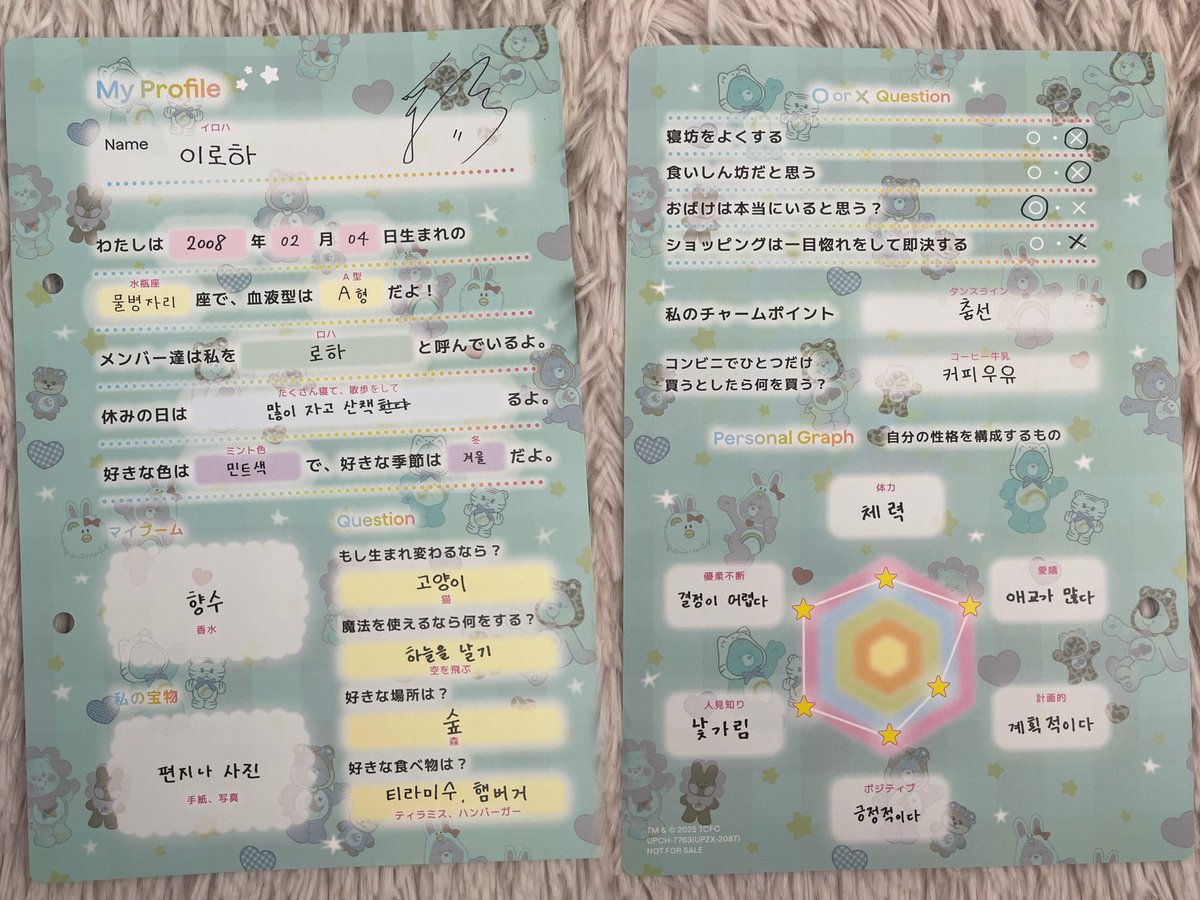 My Profile
イロハ
Name 이로하
わたしは 2008 年 02 月 04 日生まれの
水瓶座 A型
물병자리 座で、血液型は A형 だよ！
ロハ
メンバー達は私を 로하 と呼んでいるよ。
たくさん寝て、散歩をして
休みの日は 많이 자고 산책 한다 るよ。
ミント色 冬
好きな色は 민트색 で、好きな季節は 겨울 だよ。
マイブーム
향수
香水
私の宝物
편지나 사진
手紙、写真
Question
もし生まれ変わるなら？
고양이
猫
魔法を使えるなら何をする？
하늘을 날기
空を飛ぶ
好きな場所は？
숲
森
好きな食べ物は？
티라미수, 햄버거
ティラミス、ハンバーガー
O or X Question
寝坊をよくする ○・×
食いしん坊だと思う ○・×
おばけは本当にいると思う？ ○・×
ショッピングは一目惚れをして即決する ○・×
ダンスライン
私のチャームポイント 춤선
コンビニでひとつだけ
買うとしたら何を買う？
コーヒー牛乳
커피우유
Personal Graph 自分の性格を構成するもの
体力
체력
優柔不断
결정이 어렵다
愛嬌
애교가 많다
人見知り
낯가림
計画的
계획적이다
ポジティブ
긍정적이다
TM & © 2025 TCFC
UPCH-7763(UPZX-2087)
NOT FOR SALE